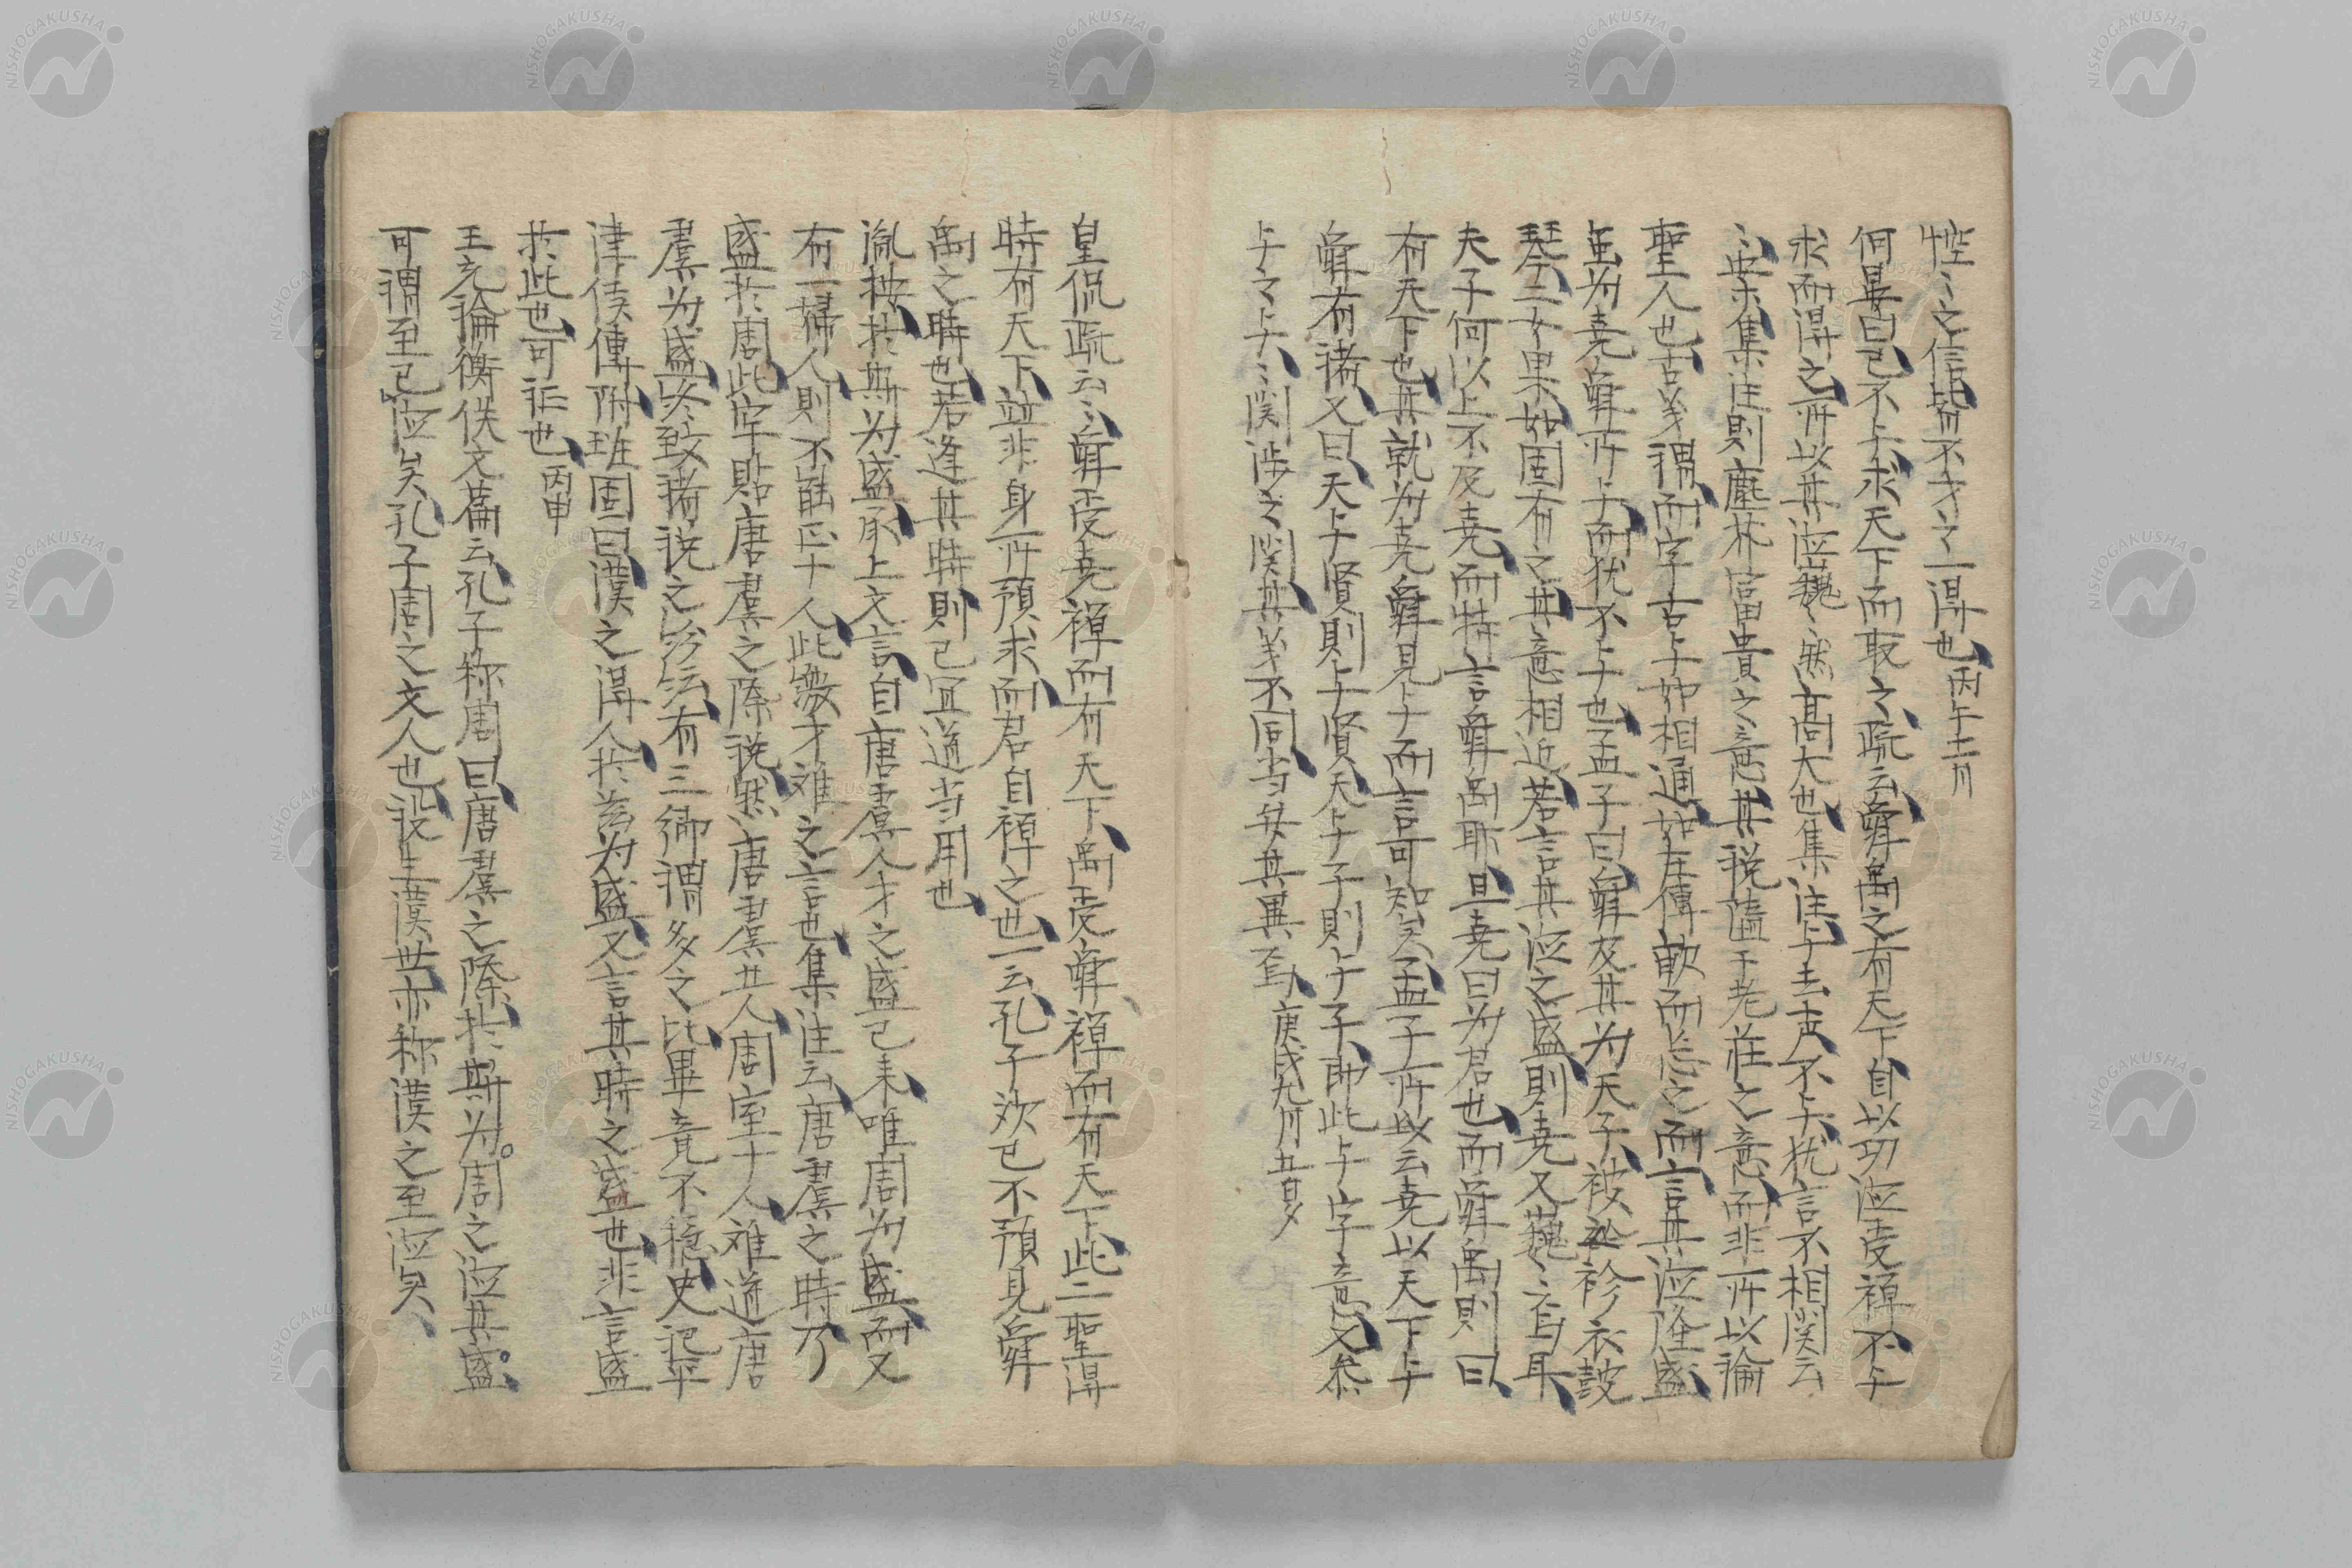 悾〻之信皆不才之一得也丙午十二月
何晏曰己不与求天下而取之疏云舜禹之有天下自以功徳受禅不与
求而得之所以其徳巍〻然高大也集注与去声不与猶言不相関云
〻安永集注則塵芥富貴之意其説陥于老荘之意而非所以論
聖人也古義謂而字古与如相通如左傳歃而忘之而言其徳隆盛
虽為堯舜所与而犹不与也孟子曰舜及其為天子被袗衣鼓
琴二女果如固有之其意相近若言其徳之盛則堯又巍〻焉耳
夫子何以上不及堯而特言舜禹耶且堯曰為君也而舜禹則曰
有天下也其就為堯舜見与而言可知矣孟子所以云堯以天下与
舜有諸又曰天与賢則与賢天与子則与子即此与字意又参
与之与〻関渉之関其義不同当安其異焉庚戌九月五日夕
皇侃疏云〻舜受堯禅而有天下禹受舜禅而有天下此二聖得
時有天下竝非身所預求而君自禅之也一云孔子歎己不預見舜
禹之時也若逢其時則己宜道当用也
胤按於斯為盛承上文言自唐虞人才之盛已来唯周為盛而又
有一婦人則不能正十人此發才难之言也集注云唐虞之時乃
盛於周此字貼唐虞之際説然唐虞五人周室十人难道唐
虞為盛必致諸説之紛紜有三卿謂多之比畢竟不穏史記平
津侯傳附班固曰漢之得人於兹為盛又言其時之盛也非言盛
於此也可証也丙申
王充論衡佚文篇云孔子称周曰唐虞之際於斯為。周之徳其盛。
可謂至已徳矣孔子周之文人也設生漢世亦称漢之至徳矣